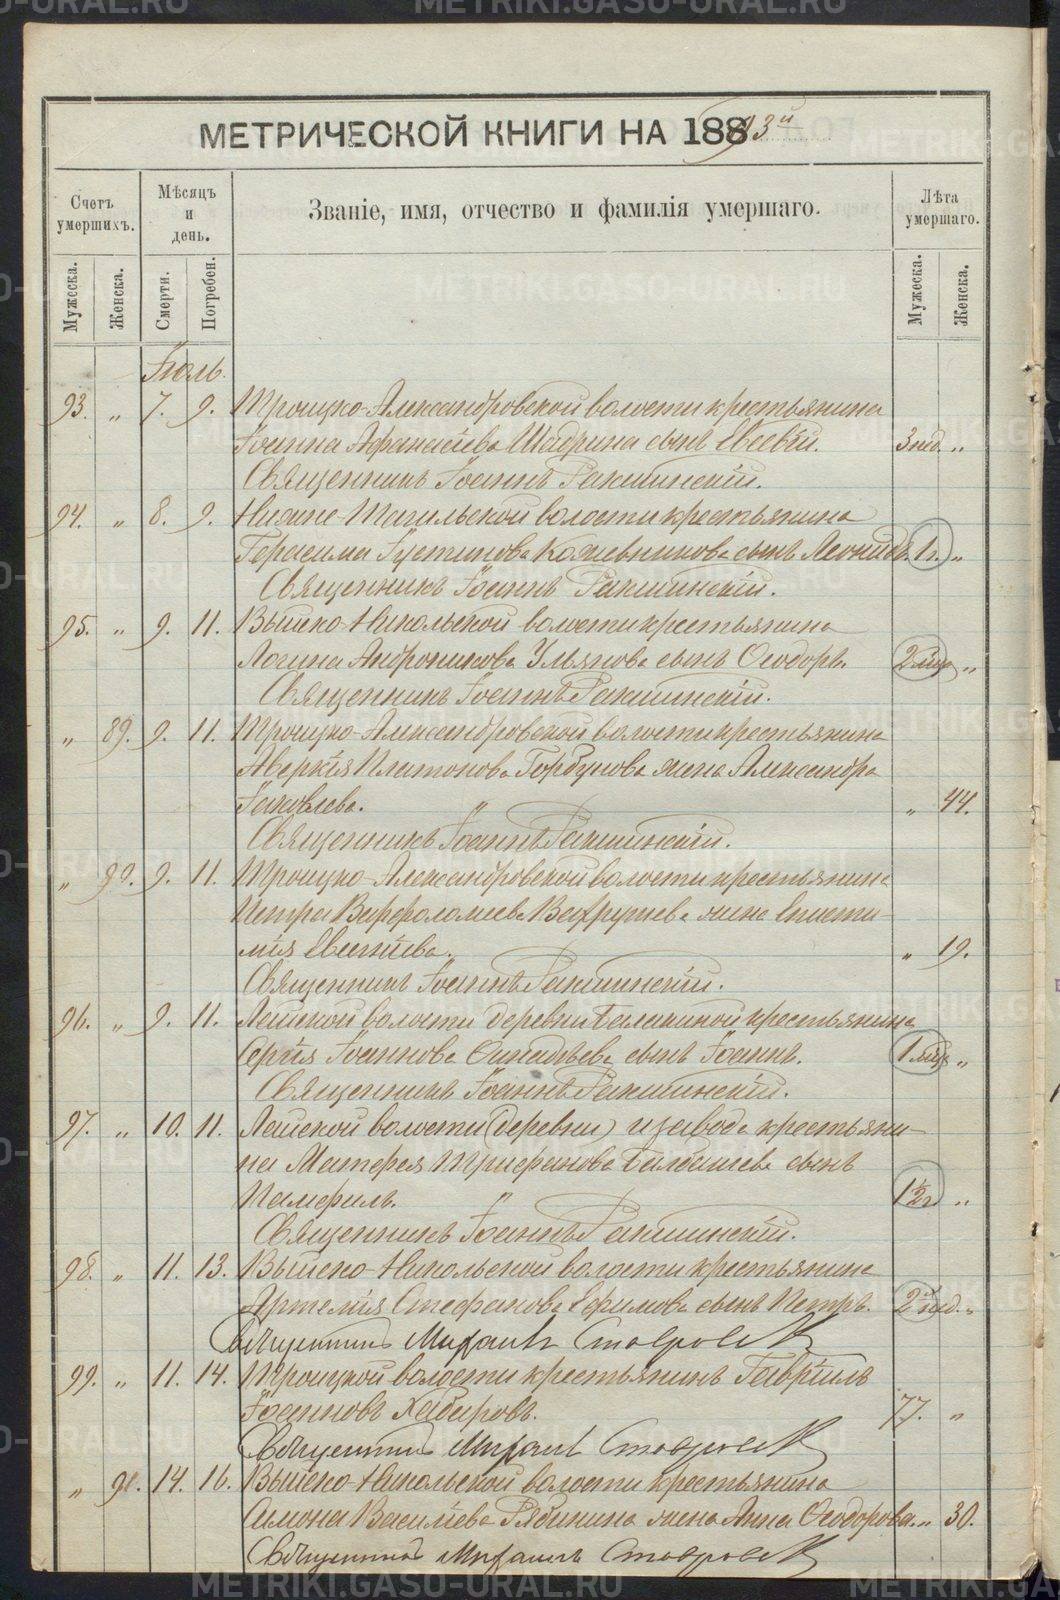 МЕТРИЧЕСКОЙ КНИГИ НА 18893й
Счетъ умершихъ.
Мѣсяцъ и день.
Званіе, имя, отчество и фамилія умершаго.
Лѣта умершаго.
Мужеска. Женска. Смерти. Погребен. Мужеска. Женска.
Іюль.
93. " 7. 9. Троицко-Александровской волости крестьянина
Іоанна Афанасіева Шадрина сынъ Евсевій. 3 нед. "
Священникъ Іоаннъ
94. " 8. 9. Нижне-Тагильской волости крестьянина
Герасима Іустинова Кожевникова сынъ Леонидъ. 1 г. "
Священникъ Іоаннъ
95. " 9. 11. Выйско-Никольской волости крестьянина
Логина Андроникова Ульянова сынъ Ѳеодоръ. 2 мѣс. "
Священникъ Іоаннъ
" 89. 9. 11. Троицко-Александровской волости крестьянина
Аверкія Платонова Горбунова жена Александра
Іаковлева. " " 44.
Священникъ Іоаннъ
" 90. 9. 11. Троицко-Александровской волости крестьянина
Петра Варфоломеева жена Еписти-
мія " 19.
Священникъ Іоаннъ
96. " 9. 11. Лайской волости деревни Балакиной крестьянина
Сергія Іоаннова сынъ Іоаннъ. 1 мѣс. "
Священникъ Іоаннъ
97. " 10. 11. Лайской волости (деревни) и завода крестьяни-
на Матфея Трифанова сынъ
Памфилъ. " 1½ г. "
Священникъ Іоаннъ
98. " 11. 13. Выйско-Никольской волости крестьянина
Артемія Стефанова Ефимова сынъ Петръ. 2 нед. "
Священникъ Михаилъ
99. " 11. 14. Троицкой волости крестьянинъ Гавріилъ
Іоанновъ Хабировъ. 77. "
Священникъ Михаилъ
" 91. 14. 16. Выйско-Никольской волости крестьянина
Симона Василіева Рябинина жена Анна Ѳеодорова. " 30.
Священникъ Михаилъ
METRIKI.GASO-URAL.RU